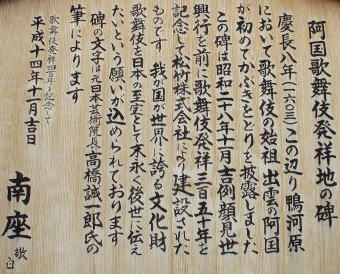 阿国歌舞伎発祥地の碑
慶長八年(一六〇三)この辺り鴨河原
において歌舞伎の始祖出雲の阿国
が初めてかぶきをどりを披露しました
この碑は昭和二十八年十一月吉例顔見世
興行を前に歌舞伎発祥三百五十年を
記念して松竹株式会社により建設された
ものです 我が国が世界に誇る文化財
歌舞伎を日本の至宝として末永く後世に伝え
たいという願いが込められております
碑の文字は元日本芸術院長高橋誠一郎氏の
筆によります
歌舞伎発祥四百年を記念して
平成十四年十一月吉日
南座 敬白